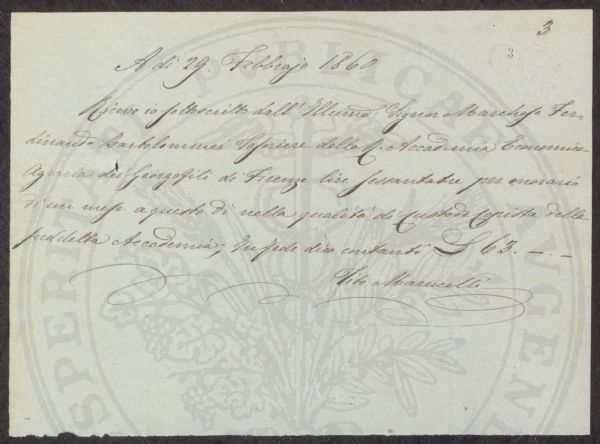 3
3
A di 29. Febbrajo 1860
Ricevo io sottoscritto dall' Illumo. Signor Marchese Fer-
dinando Bartolommei Tesoriere della R. Accademia Economico-
Agraria dei Georgofili di Firenze lire sessantatre per onorario
di un mese a questo dì nella qualità di Custode Copista della
suddetta Accademia; In fede dico contanti £ 63. -.-
Tito Marucelli
PROSPERITATI PUBLICAE AUGENDAE